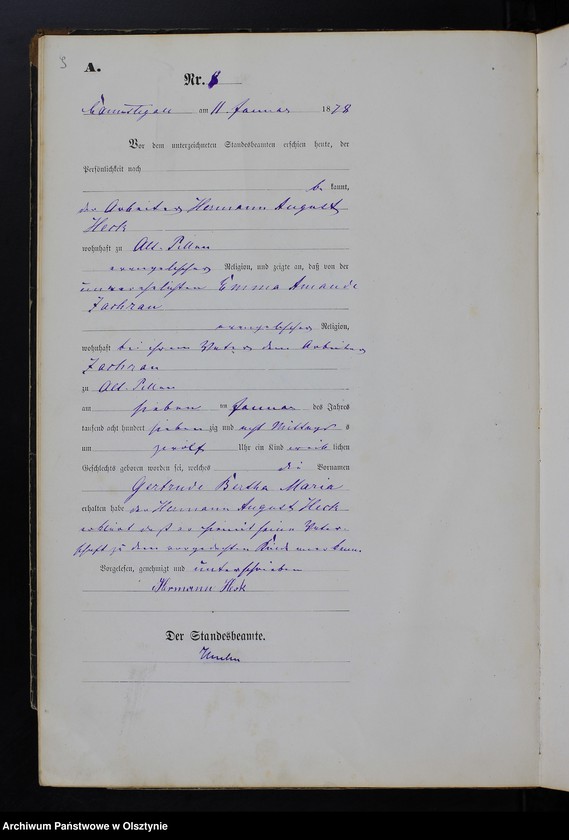 3
A.
Nr. 8
Camstigall am 11 Januar 1878
Vor dem unterzeichneten Standesbeamten erschien heute, der
Persönlichkeit nach
be kannt,
der Arbeiter Hermann August
Heck
wohnhaft zu Alt-Pillau
evangelischer Religion, und zeigte an, daß von der
unverehelichten Emma Amande
Zachrau
evangelischer Religion,
wohnhaft bei ihrem Vater dem Arbeiter
Zachrau
zu Alt-Pillau
am sieben ten Januar des Jahres
tausend acht hundert sieben zig und acht Mittags s
um zwölf Uhr ein Kind weib lichen
Geschlechts geboren worden sei, welches die Vornamen
Gertrude Bertha Maria
erhalten habe der Hermann August Heck
erklärt daß er hiemit seine Vater-
schaft zu dem vorgedachten Kinde anerkenne.
Vorgelesen, genehmigt und unterschrieben
Hermann Heck
Der Standesbeamte.
Archiwum Państwowe w Olsztynie